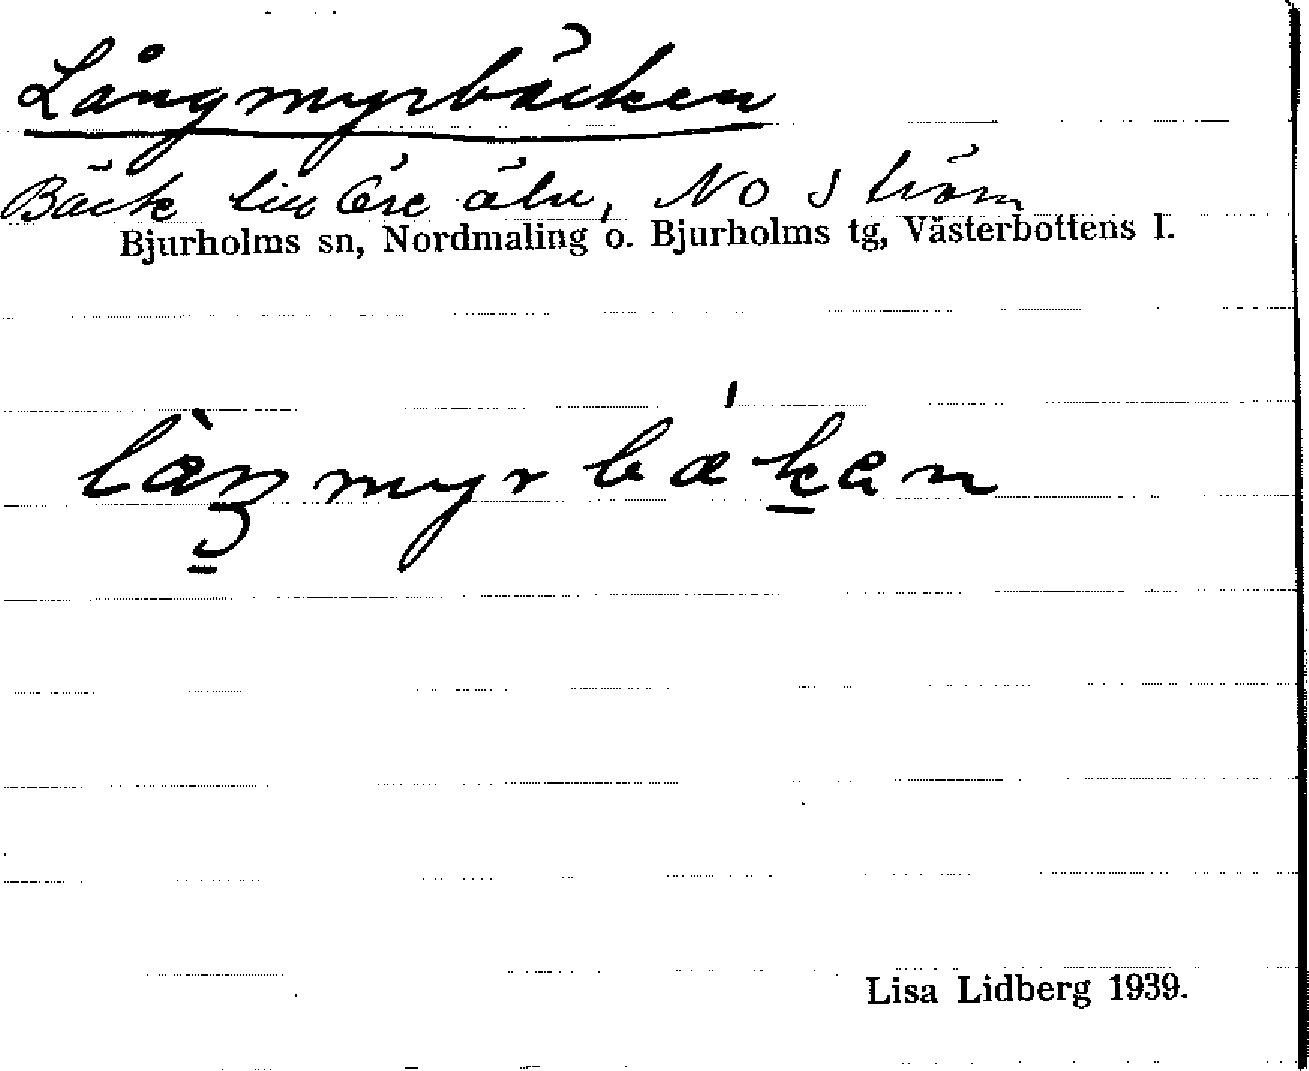 Långmyrbäcken
Bäck till Öre älv, NO Ström
Bjurholms sn, Nordmaling o. Bjurholms tg, Västerbottens l.
Lisa Lidberg 1939.